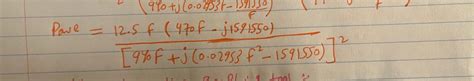 (970+j(0.02953f - 1591550)
Pave = 12.5 f (970f - j1591550)
[970f + j(0.02953 f² - 1591550)]²